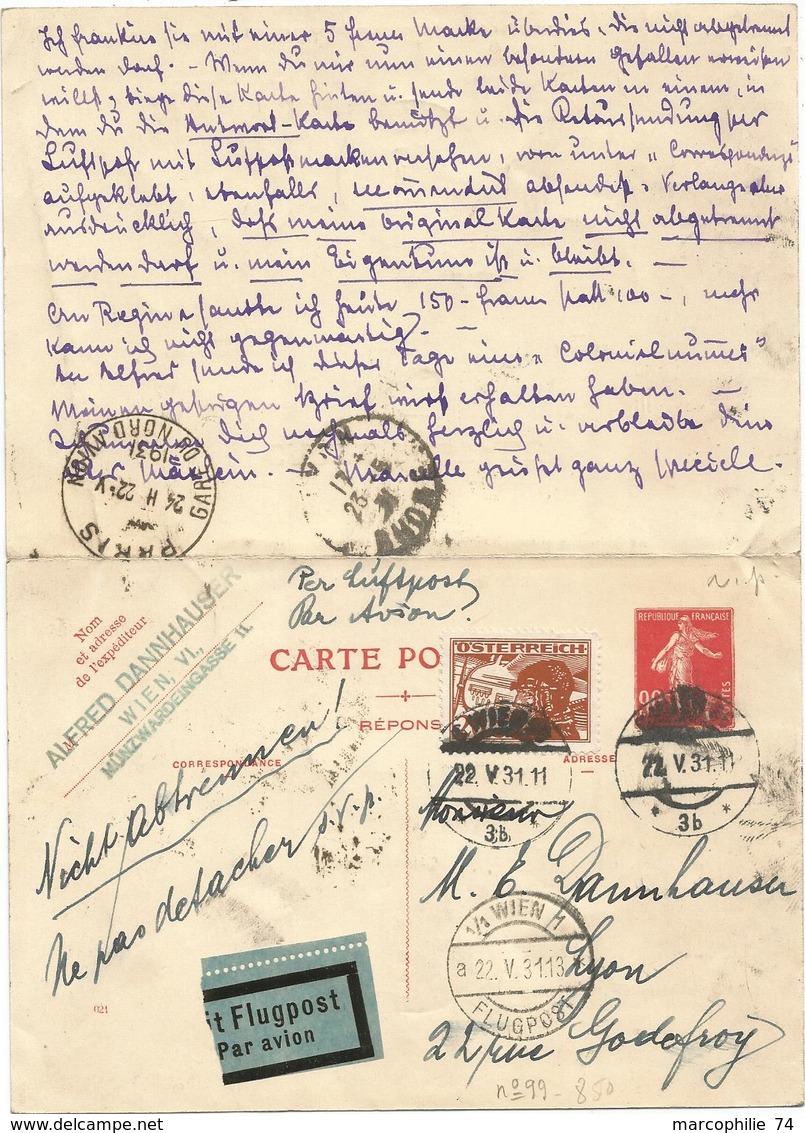 Ich frankiere sie mit einer 5 francs Marke überdies, die nicht abgetrennt
werden darf. - Wenn du mir nun einen besondern Gefallen erweisen
willst, biege diese Karte hinten u. sende beide Karten in einem, in
dem du die Antwort-Karte benützt u. die Retoursendung per
Luftpost mit Luftpostmarken versehen, vorn unter "Correspondenz"
aufgeklebt, ebenfalls, recomandirt absendest. Verlange aber
ausdrücklich, dass meine Original Karte nicht abgetrennt
werden darf u. mein Eigentum ist u. bleibt. —
An Regine sandte ich heute 150- francs statt 100-, mehr
kann ich nicht gegenwärtig. —
An Alfred sende ich dieser Tage eine "Colonialnumer"
Meinen gestrigen Brief wirst erhalten haben. —
Dich nochmals herzlich u. verbleibe dein
grüsst ganz speciell.
PARIS GARE DU NORD AVION
24 H 22·V
1931
Per Luftpost
Par Avion.
Nom
et adresse
de l'expéditeur
ALFRED DANNHAUSER
WIEN, VI.,
MÜNZWARDEINGASSE 11.
REPUBLIQUE FRANÇAISE
90
ÖSTERREICH
CARTE PO
RÉPONS
CORRESPONDANCE
ADRESSE
WIEN
22. V. 31. 11
3b
22. V. 31. 11
* 3b *
Nicht abtrennen!
Ne pas detacher s.v.p.
Monsieur
M. E. Dannhauser
Lyon
22 rue Godefroy
1/1 WIEN 1
a 22. V. 31. 13
FLUGPOST
it Flugpost
Par avion
021
nº 99 - 850
marcophilie 74